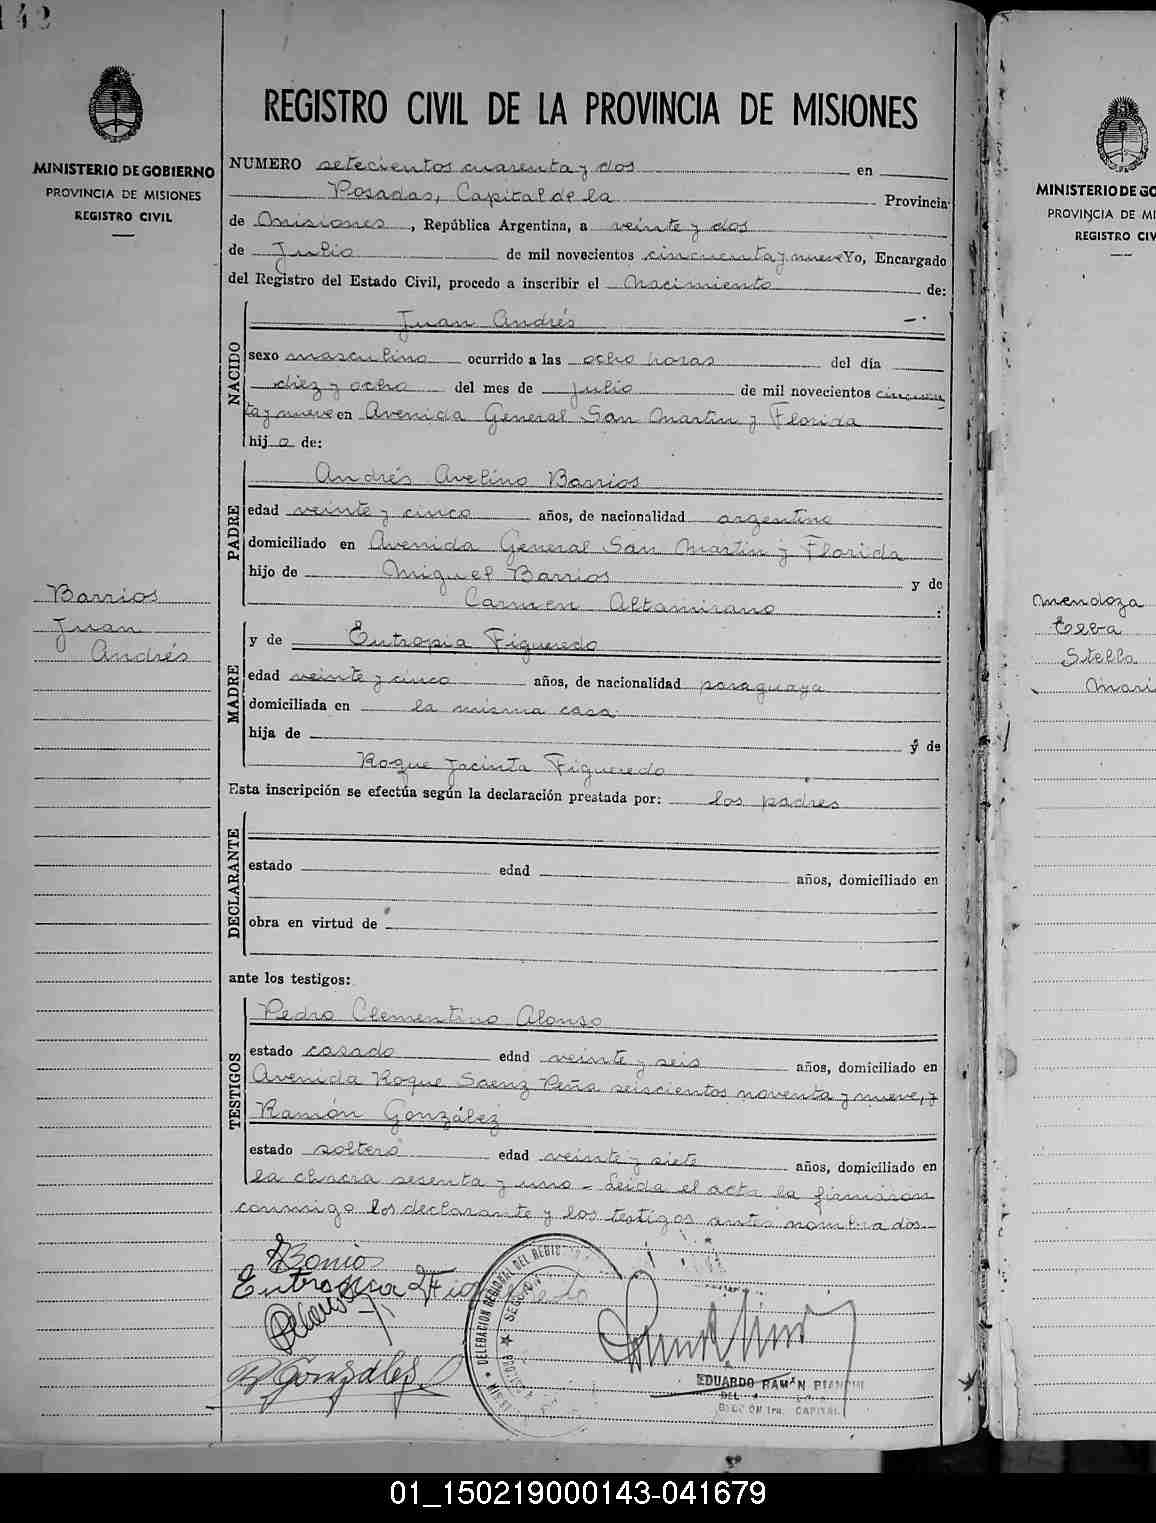 142
MINISTERIO DE GOBIERNO
PROVINCIA DE MISIONES
REGISTRO CIVIL
Barrios
Juan
Andrés
REGISTRO CIVIL DE LA PROVINCIA DE MISIONES
NUMERO setecientos cuarenta y dos en
Posadas, Capital de la Provincia
de Misiones, República Argentina, a veinte y dos
de Julio de mil novecientos cincuenta y nueve Yo, Encargado
del Registro del Estado Civil, procedo a inscribir el Nacimiento de:
NACIDO
Juan Andrés
sexo masculino ocurrido a las ocho horas del día
diez y ocho del mes de Julio de mil novecientos cincuen
ta y nueve en Avenida General San Martin y Florida
hijo de:
PADRE
Andrés Avelino Barrios
edad veinte y cinco años, de nacionalidad argentino
domiciliado en Avenida General San Martin y Florida
hijo de Miguel Barrios y de
Carmen Altamirano :
MADRE
y de Eutropia Figueredo
edad veinte y cinco años, de nacionalidad paraguaya
domiciliada en la misma casa
hija de y de
Roque Jacinta Figueredo
Esta inscripción se efectúa según la declaración prestada por: los padres
DECLARANTE
estado edad años, domiciliado en
obra en virtud de
ante los testigos:
TESTIGOS
Pedro Clementino Alonso
estado casado edad veinte y seis años, domiciliado en
Avenida Roque Saenz Peña seiscientos noventa y nueve, y
Ramón González
estado soltero edad veinte y siete años, domiciliado en
la chacra sesenta y uno - Leida el acta la firmaron
conmigo los declarante y los testigos antes nombrados
Eutropia Figueredo
R Gonzalez
DELEGACION REGIONAL DEL REGIS
EDUARDO RAMON BIANCHI
CAPITAL
MINISTERIO DE GO
PROVINCIA DE MI
REGISTRO CIV
Mendoza
Elba
Stella
Mari
01_150219000143-041679